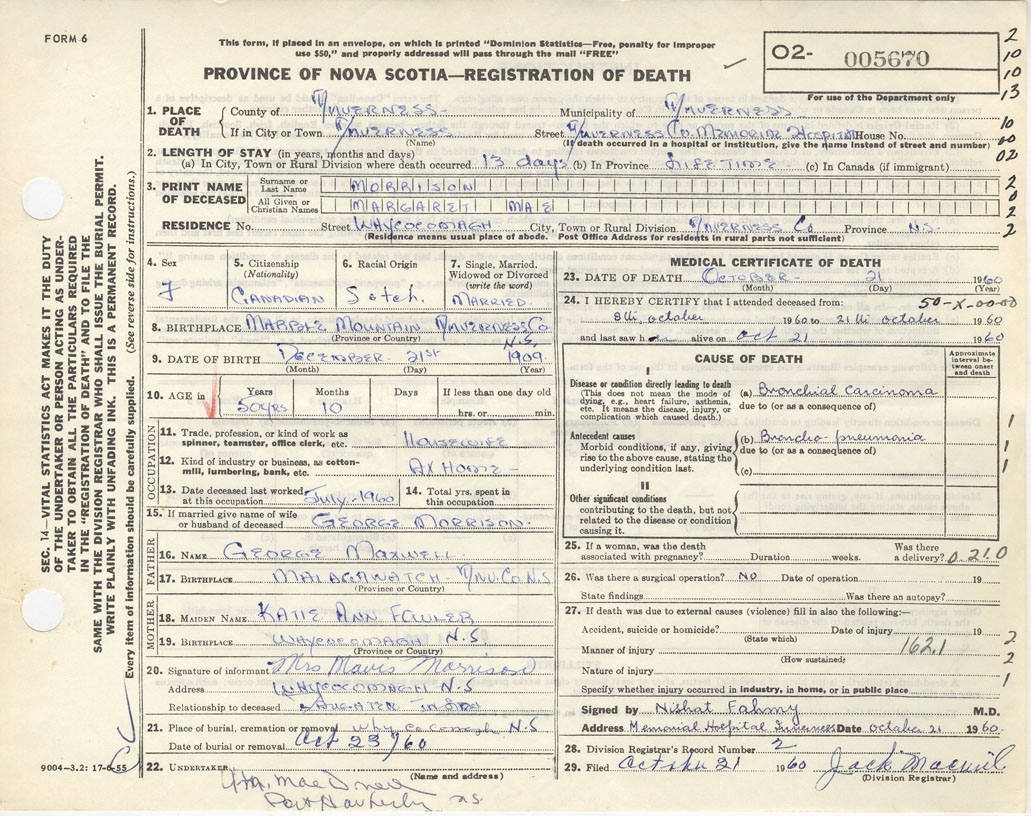 FORM 6
This form, if placed in an envelope, on which is printed "Dominion Statistics—Free, penalty for improper
use $50," and properly addressed will pass through the mail "FREE"
PROVINCE OF NOVA SCOTIA—REGISTRATION OF DEATH
O2- 005670
For use of the Department only
2
10
10
13
10
60
02
2
0
2
2
SEC. 14—VITAL STATISTICS ACT MAKES IT THE DUTY
OF THE UNDERTAKER OR PERSON ACTING AS UNDER-
TAKER TO OBTAIN ALL THE PARTICULARS REQUIRED
IN THE "REGISTRATION OF DEATH" AND TO FILE THE
SAME WITH THE DIVISION REGISTRAR WHO SHALL ISSUE THE BURIAL PERMIT.
WRITE PLAINLY WITH UNFADING INK. THIS IS A PERMANENT RECORD.
Every item of information should be carefully supplied. (See reverse side for instructions.)
1. PLACE OF DEATH
County of INVERNESS Municipality of INVERNESS
If in City or Town INVERNESS Street INVERNESS CO. MEMORIAL HOSPITAL House No.
(Name) (If death occurred in a hospital or institution, give the name instead of street and number)
2. LENGTH OF STAY (in years, months and days)
(a) In City, Town or Rural Division where death occurred 13 days (b) In Province LIFETIME (c) In Canada (if immigrant)
3. PRINT NAME OF DECEASED
Surname or Last Name MORRISON
All Given or Christian Names MARGARET MAE
RESIDENCE No. Street WHYCOCOMAGH City, Town or Rural Division INVERNESS Co Province N.S.
(Residence means usual place of abode. Post Office Address for residents in rural parts not sufficient)
4. Sex F
5. Citizenship (Nationality) CANADIAN
6. Racial Origin Scotch.
7. Single, Married, Widowed or Divorced (write the word) MARRIED.
8. BIRTHPLACE MARBLE MOUNTAIN INVERNESS Co N.S,
(Province or Country)
9. DATE OF BIRTH DECEMBER 21ST 1909.
(Month) (Day) (Year)
10. AGE in Years 50 YRS Months 10 Days If less than one day old hrs. or min.
OCCUPATION
11. Trade, profession, or kind of work as spinner, teamster, office clerk, etc. HOUSEWIFE
12. Kind of industry or business, as cotton-mill, lumbering, bank, etc. AT HOME -
13. Date deceased last worked at this occupation July-1960
14. Total yrs. spent in this occupation
15. If married give name of wife or husband of deceased GEORGE MORRISON.
FATHER
16. NAME GEORGE MAXWELL.
17. BIRTHPLACE MALAGAWATCH - INV. CO. N.S
(Province or Country)
MOTHER
18. MAIDEN NAME KATIE ANN FOWLER
19. BIRTHPLACE WHYCOCOMAGH N.S
(Province or Country)
20. Signature of informant Mrs Mavis Morrison
Address WHYCOCOMAGH N.S
Relationship to deceased DAUGHTER IN LAW
21. Place of burial, cremation or removal Whycocomagh N.S
Date of burial or removal Oct 23/60
22. UNDERTAKER
(Name and address)
Port Hawkesbury N.S.
9004-3.2: 17-6-55
MEDICAL CERTIFICATE OF DEATH
23. DATE OF DEATH OCTOBER 21 1960
(Month) (Day) (Year)
24. I HEREBY CERTIFY that I attended deceased from: 50-X-00-00
8th, october 1960 to 21th october 1960
and last saw her alive on Oct 21 1960
CAUSE OF DEATH
Approximate interval between onset and death
I
Disease or condition directly leading to death
(This does not mean the mode of dying, e.g., heart failure, asthenia, etc. It means the disease, injury, or complication which caused death.)
(a) Bronchial Carcinoma
due to (or as a consequence of)
Antecedent causes
Morbid conditions, if any, giving rise to the above cause, stating the underlying condition last.
(b) Broncho-pneumonia
due to (or as a consequence of)
(c)
II
Other significant conditions
contributing to the death, but not related to the disease or condition causing it.
1
1
1
25. If a woman, was the death associated with pregnancy? Duration weeks. Was there a delivery? 0.21.0
26. Was there a surgical operation? NO Date of operation 19
State findings Was there an autopsy?
27. If death was due to external causes (violence) fill in also the following:—
Accident, suicide or homicide? Date of injury 19
(State which)
Manner of injury 162.1
(How sustained)
Nature of injury
Specify whether injury occurred in industry, in home, or in public place
2
2
1
Signed by Nishat Fahmy M.D.
Address Memorial Hospital Inverness Date october 21 1960
28. Division Registrar's Record Number 2
29. Filed October 21 1960 Jack Macneil
(Division Registrar)